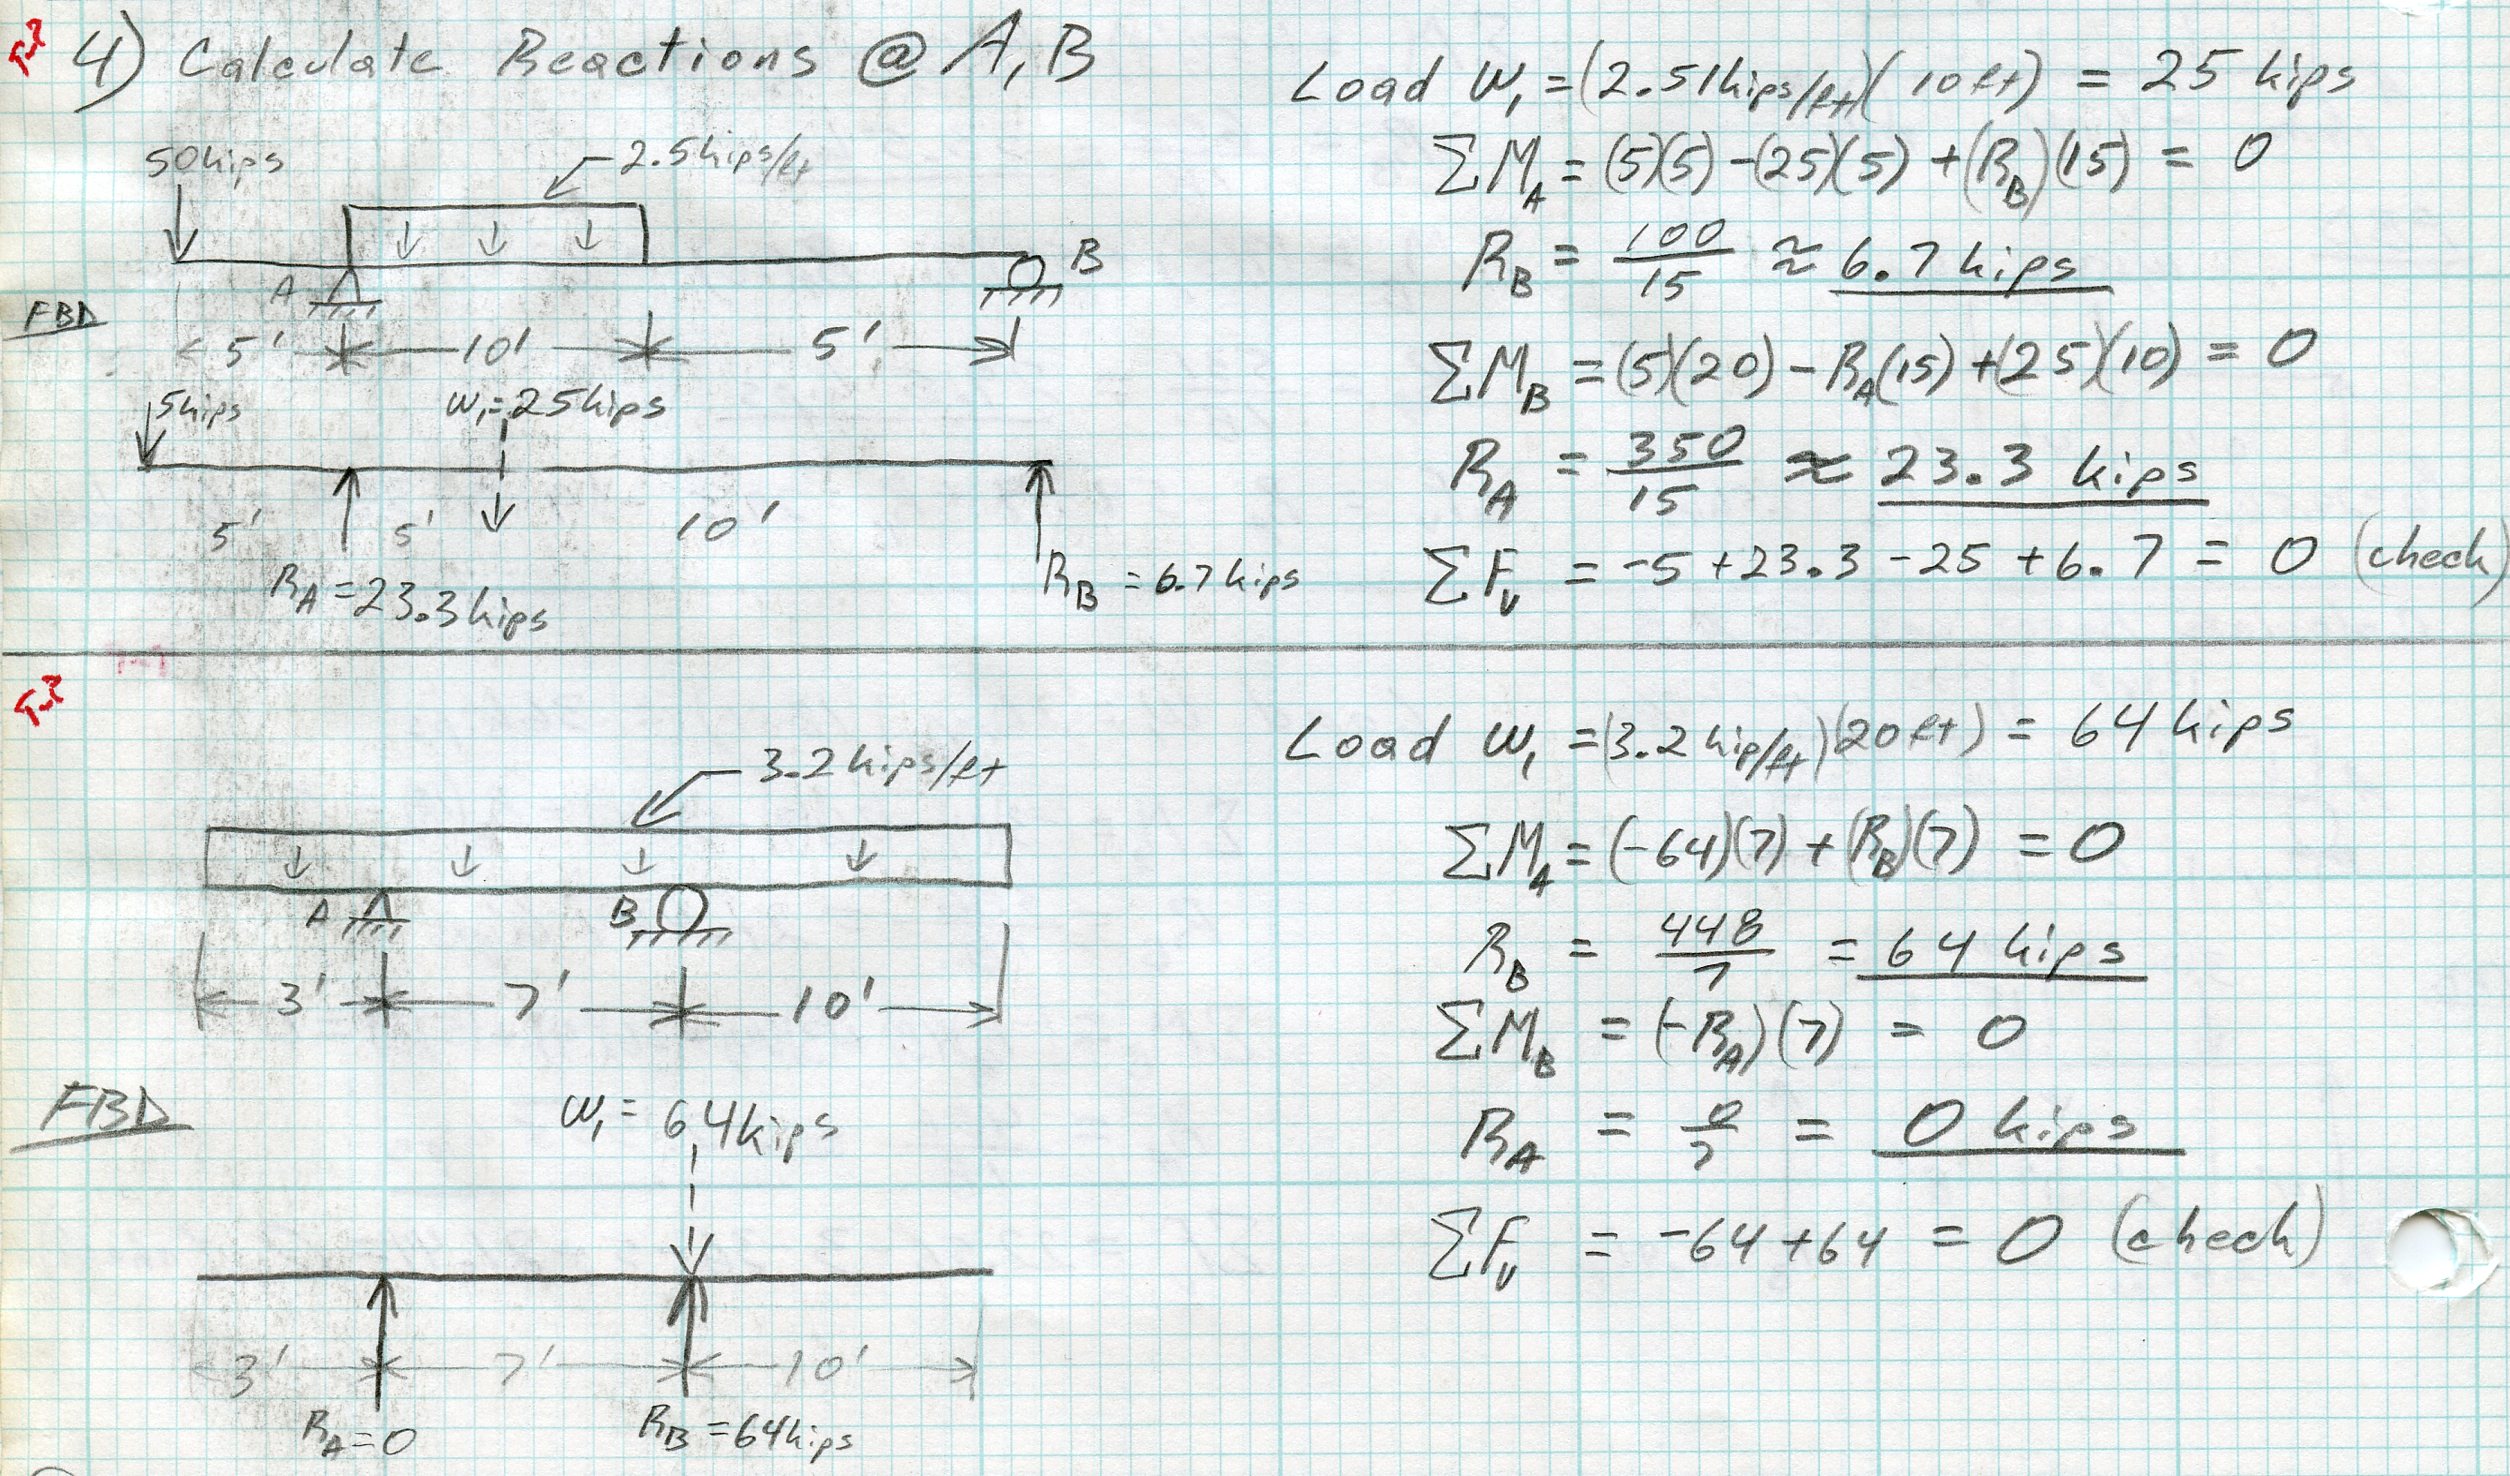 4) Calculate Reactions @ A, B
50kips
2.5kips/ft
A
B
5' 10' 5'
FBD
5kips
W₁=25kips
5' 5' 10'
R_A=23.3kips
R_B=6.7kips
Load W₁=(2.51kips/ft)(10ft) = 25 kips
ΣM_A = (5)(5) -(25)(5) +(R_B)(15) = 0
R_B = 100/15 ≈ 6.7 kips
ΣM_B =(5)(20) - R_A(15) +(25)(10) = 0
R_A = 350/15 ≈ 23.3 kips
ΣF_V = -5 +23.3 -25 +6.7 = 0 (check)
3.2kips/ft
A
B
3' 7' 10'
FBD
W₁= 64kips
3' 7' 10'
R_A=0
R_B=64kips
Load W₁ =(3.2 kip/ft)(20ft) = 64 kips
ΣM_A = (-64)(7) + (R_B)(7) = 0
R_B = 448/7 = 64 kips
ΣM_B = (-R_A)(7) = 0
R_A = 0/7 = 0 kips
ΣF_V = -64+64 = 0 (check)